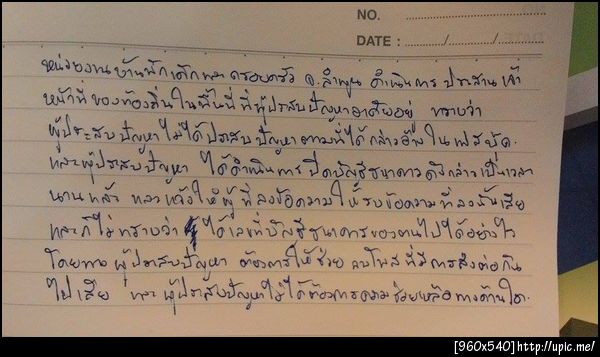 NO.
DATE : / / /
หน่วยงานบ้านพักเด็กและครอบครัว จ.ลำพูน ดำเนินการ ประสานเจ้า
หน้าที่ของท้องถิ่นในพื้นที่ที่ผู้ประสบปัญหาอาศัยอยู่ ทราบว่า
ผู้ประสบปัญหาไม่ได้ประสบปัญหาตามที่ได้กล่าวอ้างในเฟสบุ๊ค.
และผู้ประสบปัญหา ได้ดำเนินการ ปิดบัญชีธนาคารดังกล่าวเป็นเวลา
นานแล้ว และแจ้งให้ผู้ที่ลงข้อความให้ลบข้อความที่ลงนั้นเสีย
และก็ไม่ทราบว่า ได้เลขที่บัญชีธนาคารของตนไปได้อย่างไร
โดยทาง ผู้ประสบปัญหา ต้องการให้ช่วย ลบโพสที่มีการส่งต่อกัน
ไปเสีย และ ผู้ประสบปัญหาไม่ได้ต้องการความช่วยเหลือทางด้านใด.
[960x540]http://upic.me/